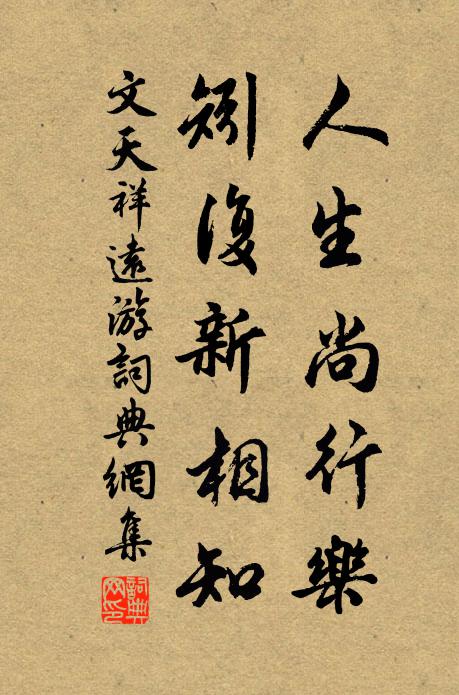 人生尚行樂
矧復新相知
文天祥遠游詞典網集
詞典網印